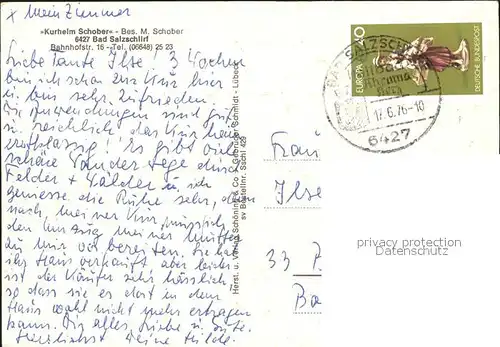 x Mein Zimmer
»Kurheim Schober« - Bes. M. Schober
6427 Bad Salzschlirf
Bahnhofstr. 16 - Tel. (06648) 25 23
Liebe Tante Ilse! 3 Wochen
bin ich schon zur Kur hier
u. bin sehr zufrieden.
Die Anwendungen sind gut
u. reichlich das Kurhaus
erstklassig! Es gibt viele
schöne Wanderwege durch
Felder + Wälder u. ich
genieße die Ruhe sehr, denn
nach meiner Kur muss ich
den Umzug meiner Mutter
zu mir vorbereiten. Sie hat
ihr Haus verkauft aber leider
ist der Käufer sehr hässlich
so dass sie es dort in dem
Haus wohl nicht mehr ertragen
kann. Dir alles Liebe u. Gute.
Herzlichst Deine Hilde.
Herst. u. Verlag Schöning & Co + Gebrüder Schmidt - Lübeck
sv Bestellnr. Sschl 429
EUROPA
DEUTSCHE BUNDESPOST
BAD SALZSCH
17.6.76-10
6427
Frau
Ilse
33
privacy protection
Datenschutz